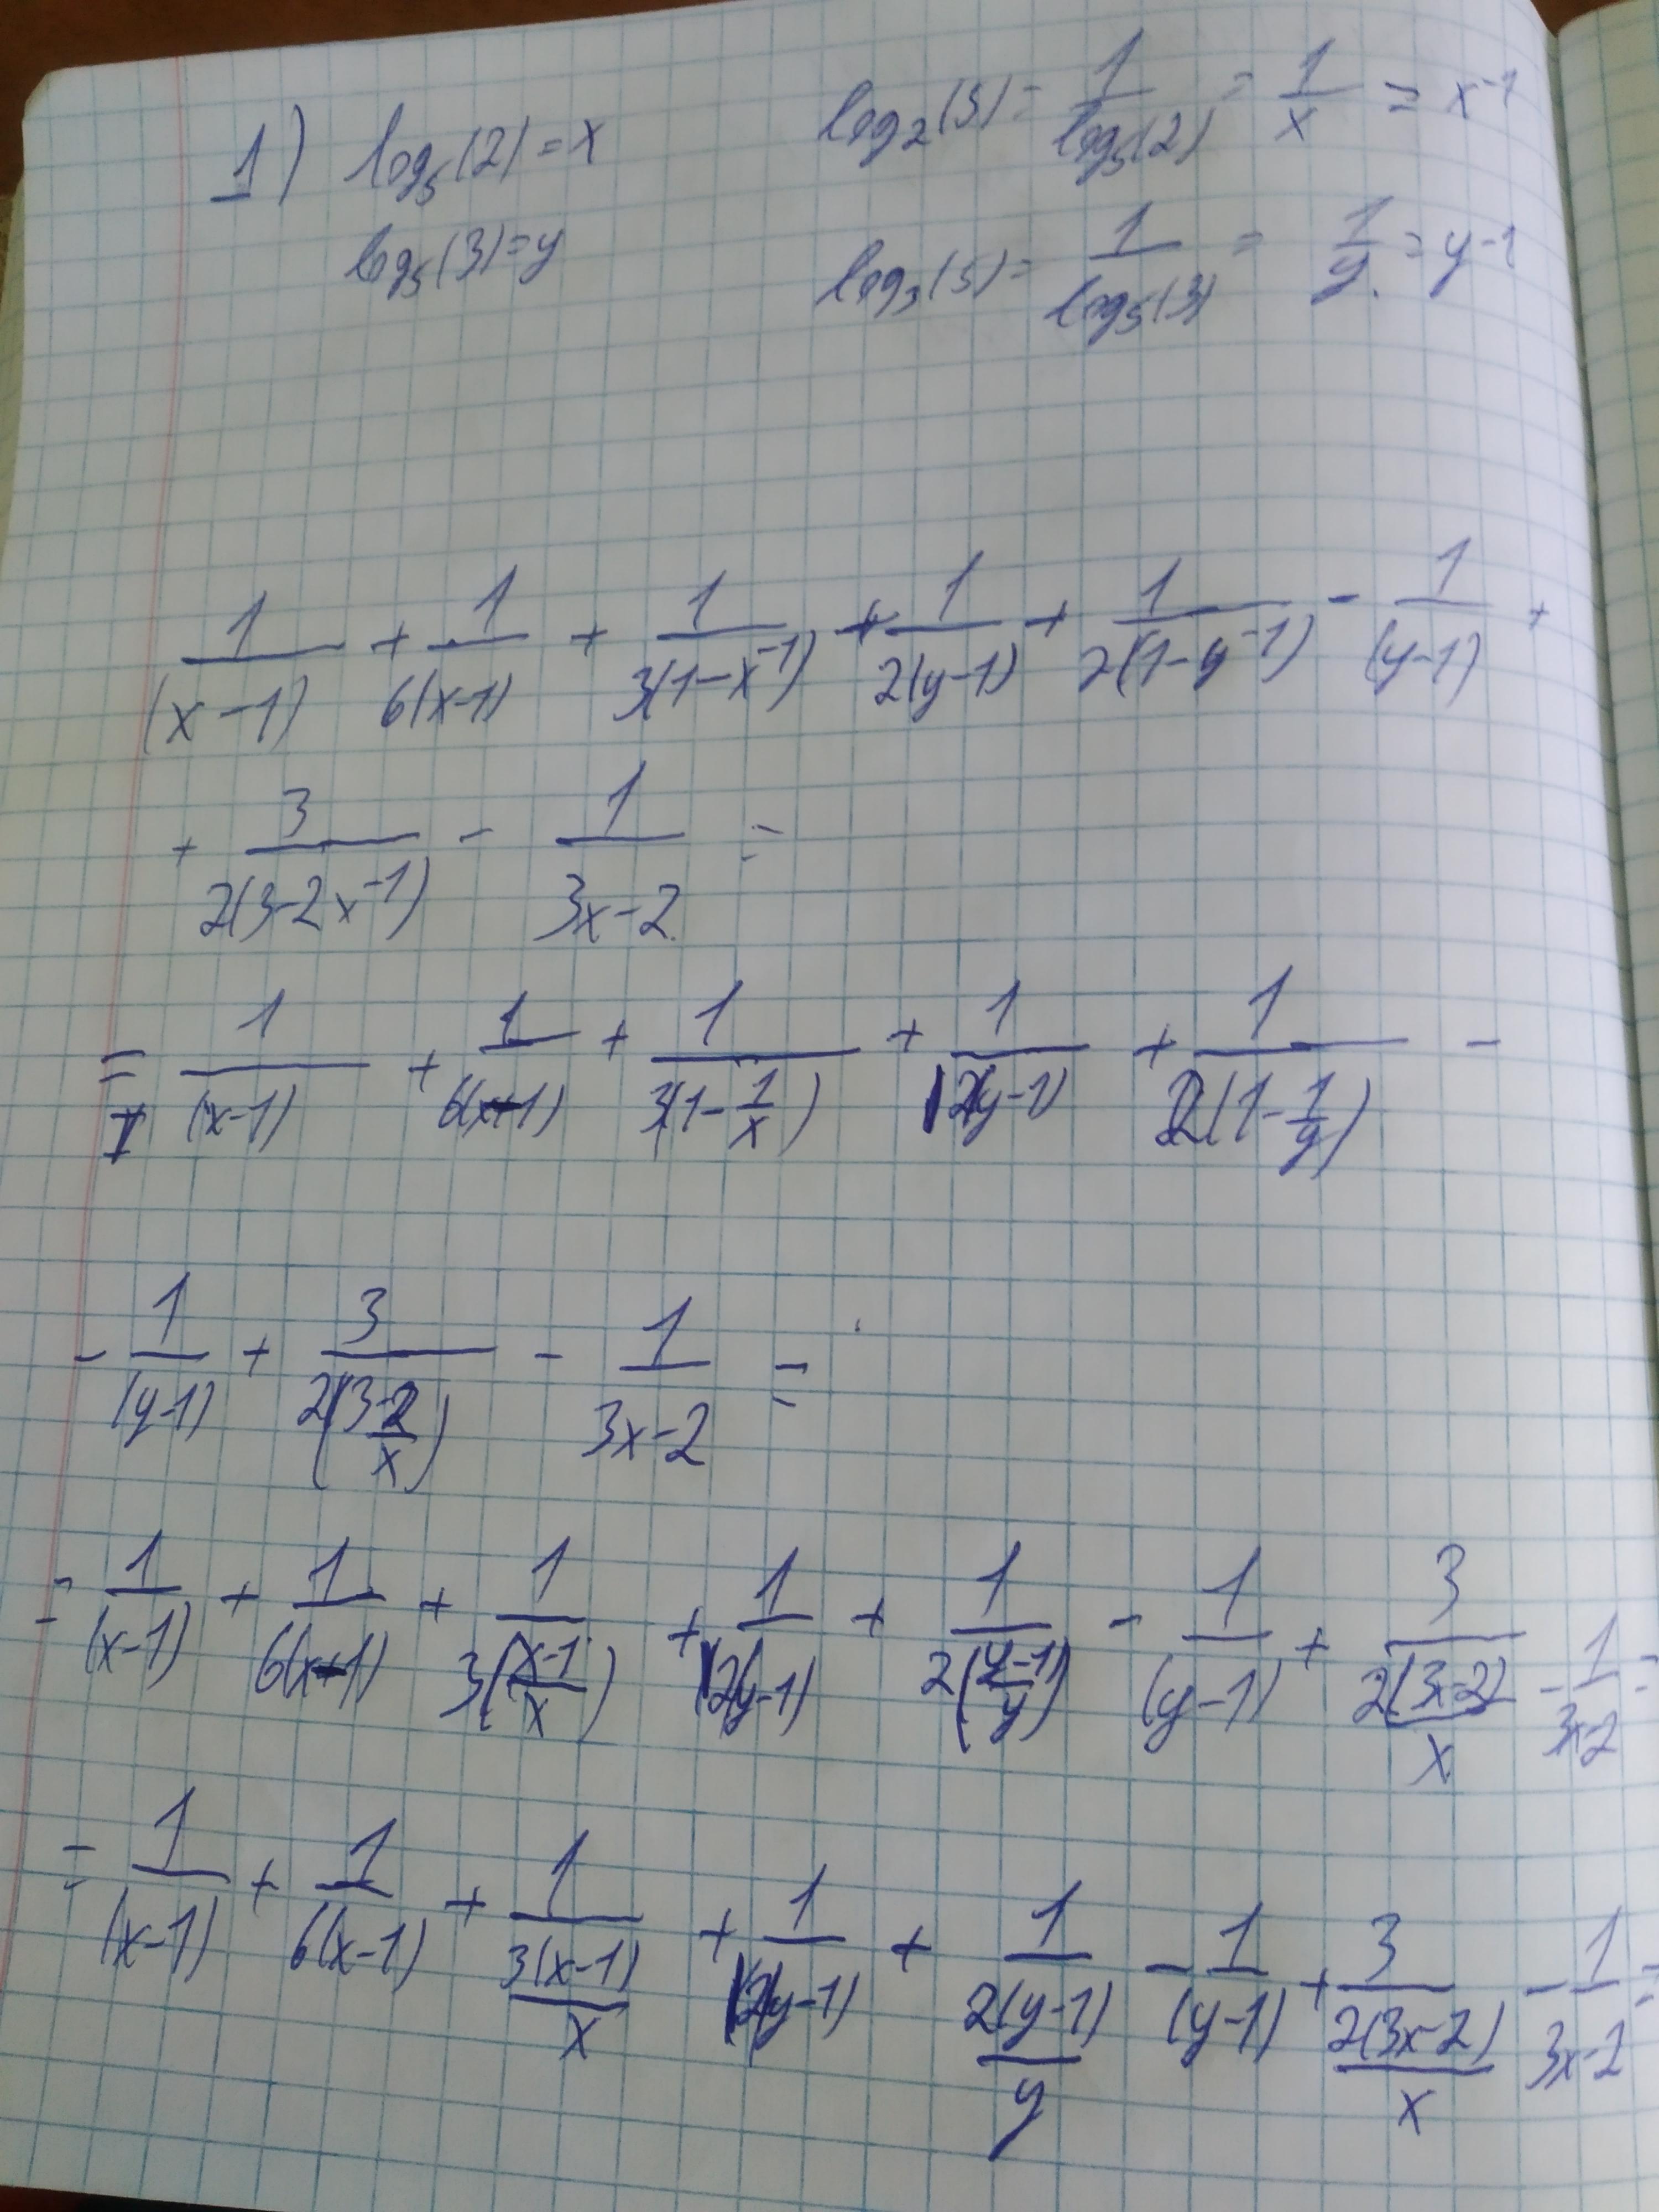 1) log₅(2)=x   log₂(5)= 1/log₅(2) = 1/x = x⁻¹
log₅(3)=y   log₃(5)= 1/log₅(3) = 1/y = y⁻¹
1/(x-1) + 1/6(x-1) + 1/3(1-x⁻¹) + 1/2(y-1) + 1/2(1-y⁻¹) - 1/(y-1) +
+ 3/2(3-2x⁻¹) - 1/3x-2 =
= 1/(x-1) + 1/6(x-1) + 1/3(1-1/x) + 1/2(y-1) + 1/2(1-1/y) -
- 1/(y-1) + 3/2(3-2/x) - 1/3x-2 =
= 1/(x-1) + 1/6(x-1) + 1/3((x-1)/x) + 1/2(y-1) + 1/2((y-1)/y) - 1/(y-1) + 3/(2(3x-2)/x) - 1/3x-2 =
= 1/(x-1) + 1/6(x-1) + 1/(3(x-1)/x) + 1/2(y-1) + 1/(2(y-1)/y) - 1/(y-1) + 3/(2(3x-2)/x) - 1/3x-2 =